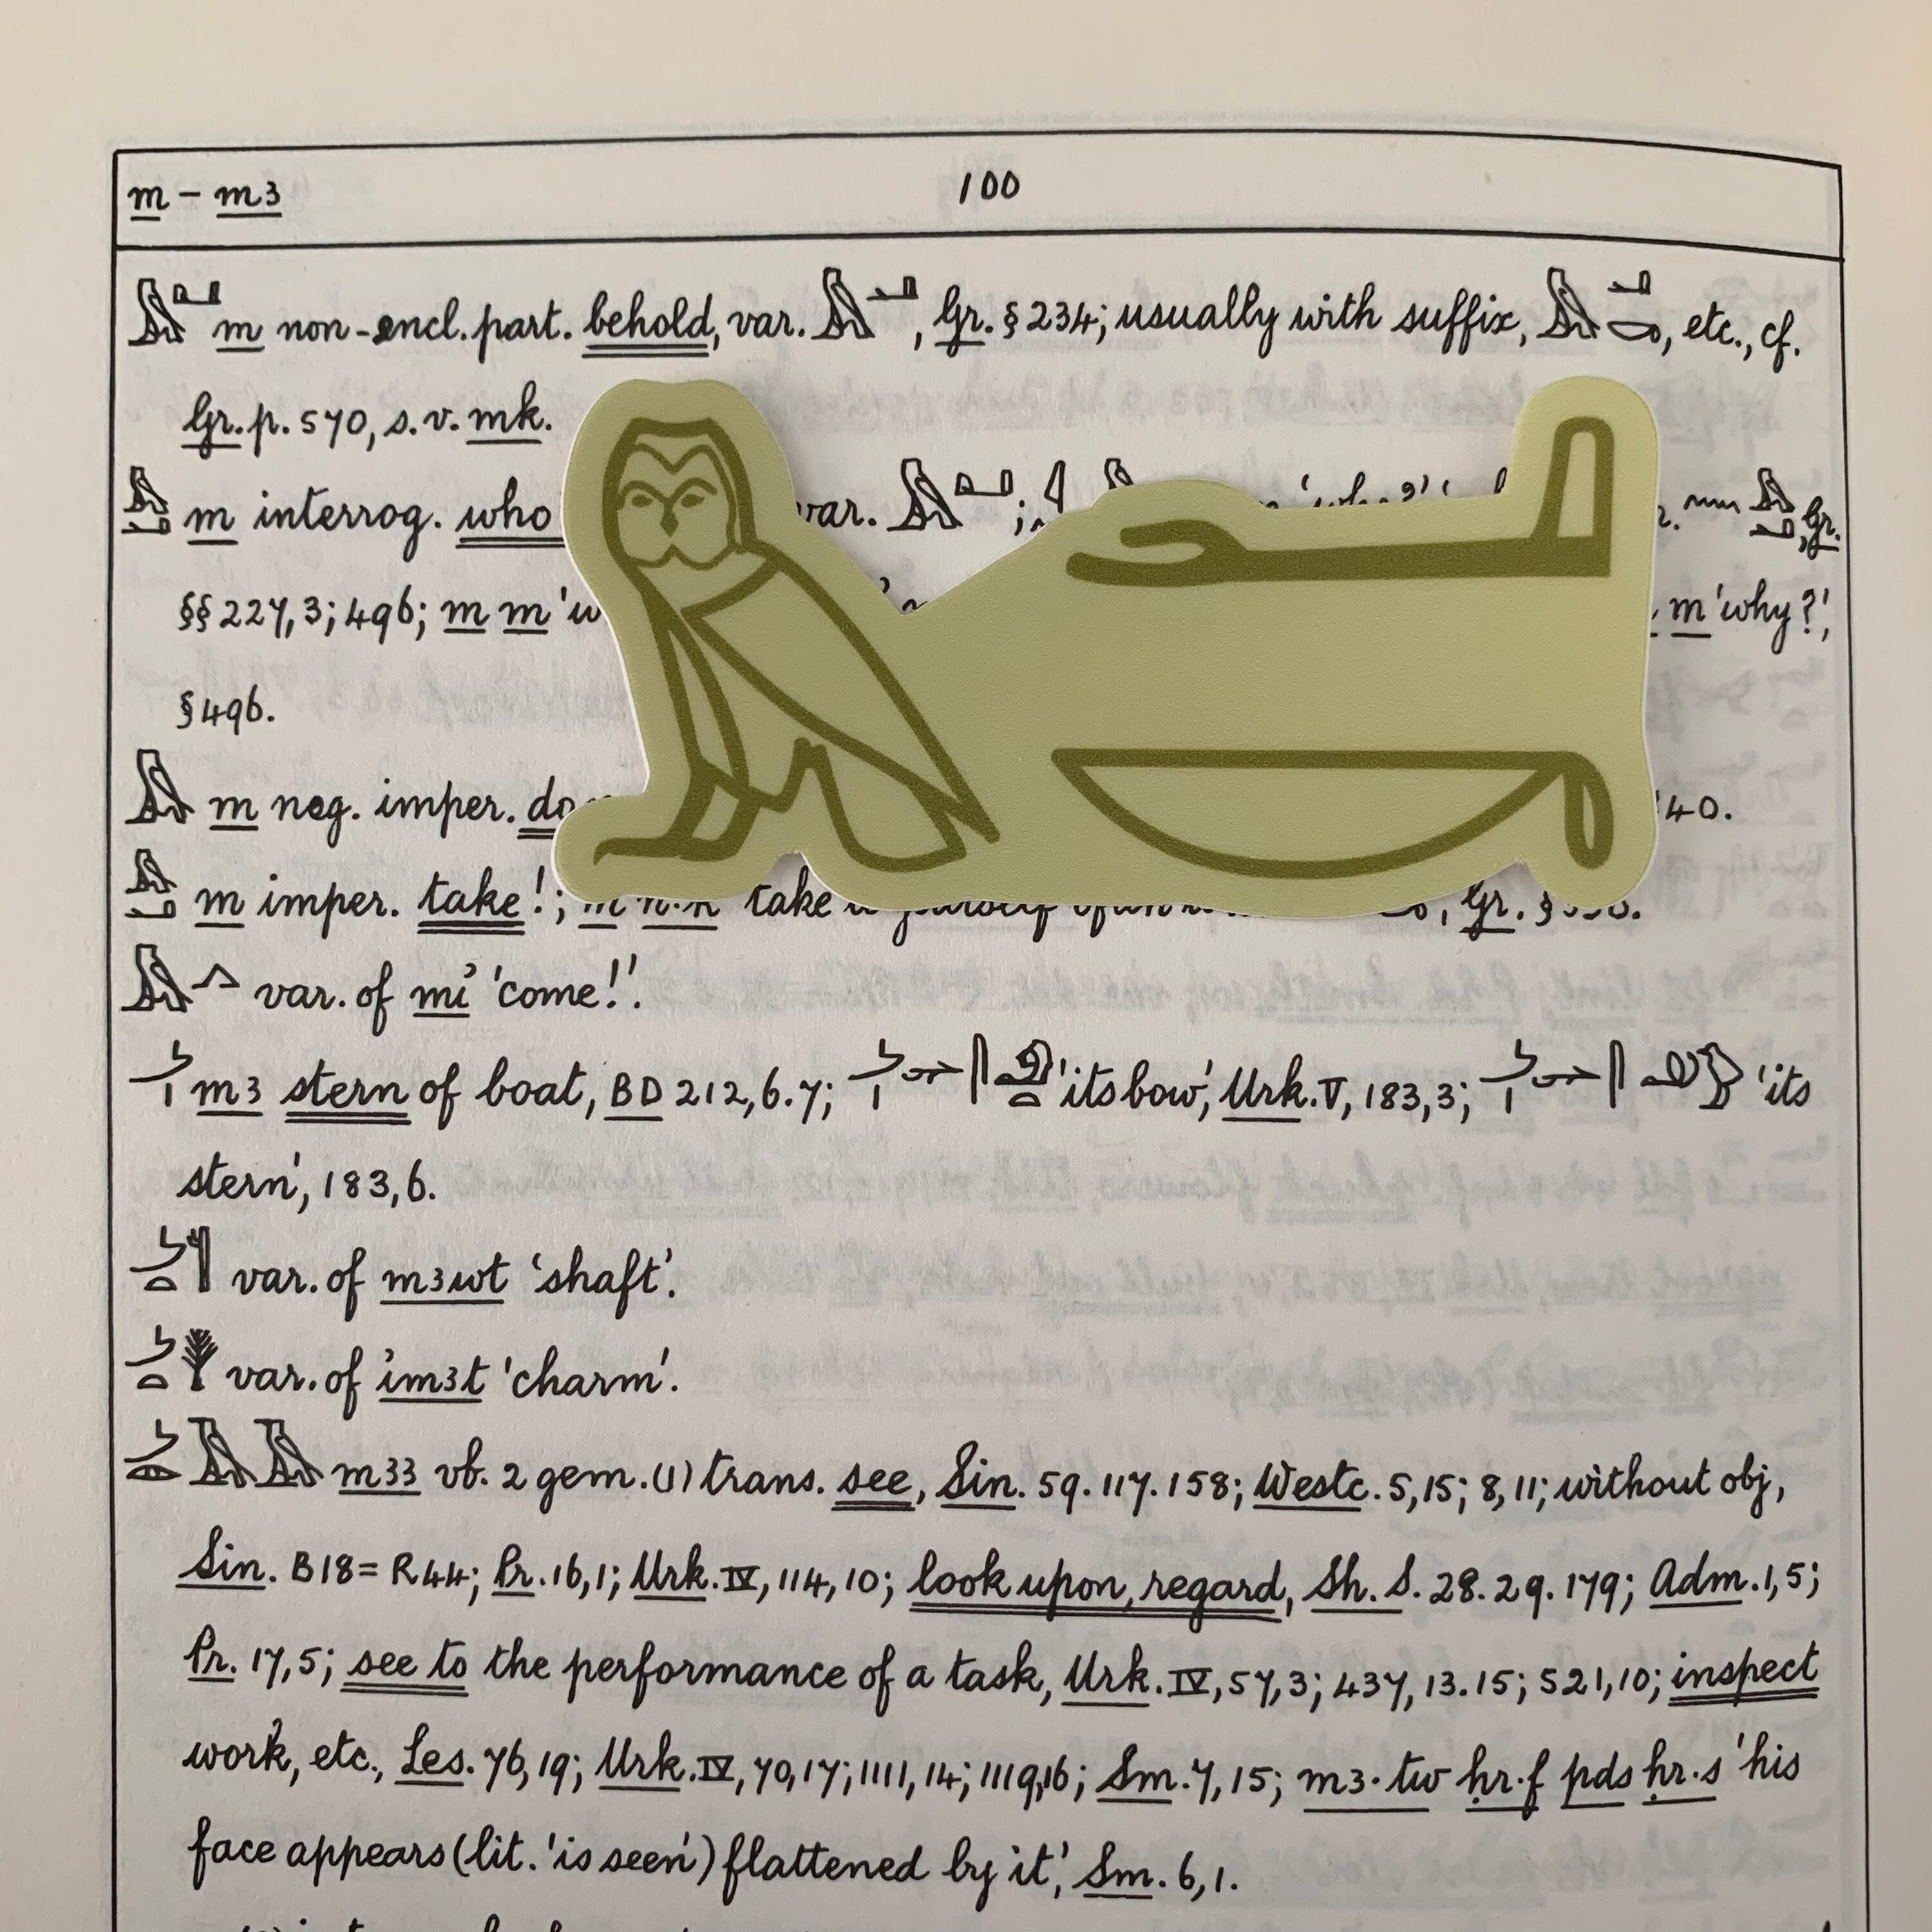 m – mꜣ 100
𓅓𓂝 m non-encl. part. behold, var. 𓅓𓂝, Gr. § 234; usually with suffix, 𓅓𓂝𓎡, etc., cf.
Gr. p. 570, s.v. mk.
𓅓𓂝 m interrog. who var. 𓅓𓂝; 𓈖𓅓𓂝, Gr.
§§ 227, 3; 496; m m m 'why?',
§ 496.
𓅓 m neg. imper. 40.
𓅓𓂝𓎡
𓅓𓂝 m imper. take!; m n.k take Gr. §
𓅓𓂻 var. of mỉ 'come!'.
𓌳𓏤 mꜣ stern of boat, BD 212, 6. 7; 'its bow', Urk. V, 183, 3; 'its
stern', 183, 6.
var. of mꜣwt 'shaft'.
var. of ỉmꜣt 'charm'.
𓌳𓁹𓄿𓄿 mꜣꜣ vb. 2 gem. (1) trans. see, Sin. 59. 117. 158; Westc. 5, 15; 8, 11; without obj,
Sin. B18 = R44; Pr. 16, 1; Urk. IV, 114, 10; look upon, regard, Sh. S. 28. 29. 179; Adm. 1, 5;
Pr. 17, 5; see to the performance of a task, Urk. IV, 57, 3; 437, 13. 15; 521, 10; inspect
work, etc., Les. 76, 19; Urk. IV, 70, 17; 1111, 14; 1119, 16; Sm. 7, 15; mꜣ·tw ḥr·f pds ḥr·s 'his
face appears (lit. 'is seen') flattened by it', Sm. 6, 1.